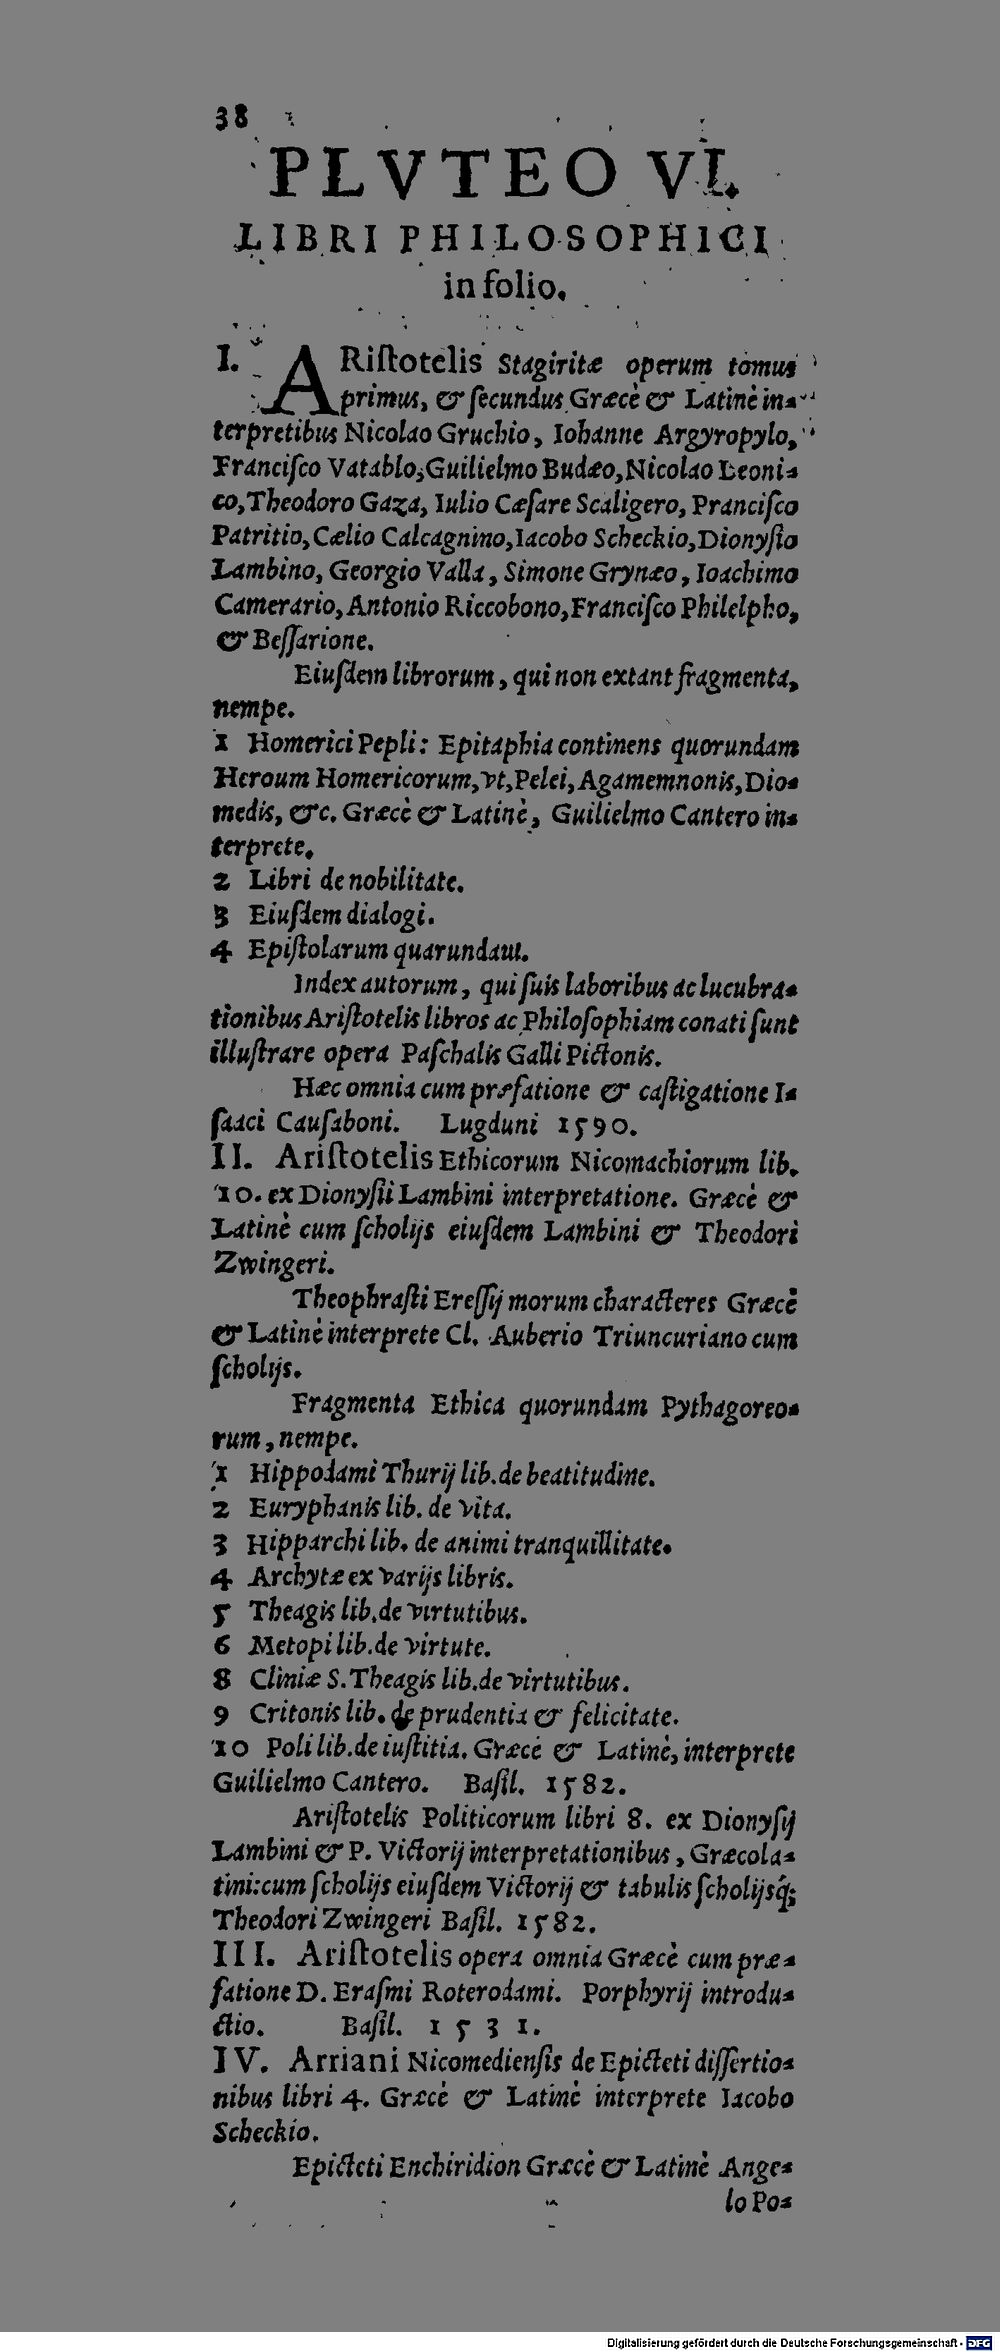 38
PLVTEO VI.
LIBRI PHILOSOPHICI
in folio.
I. ARiſtotelis Stagiritæ operum tomus
primus, & ſecundus Græcè & Latinè in-
terpretibus Nicolao Gruchio, Iohanne Argyropylo,
Franciſco Vatablo, Guilielmo Budæo, Nicolao Leoni-
co, Theodoro Gaza, Iulio Cæſare Scaligero, Pranciſco
Patritio, Cælio Calcagnino, Iacobo Scheckio, Dionyſio
Lambino, Georgio Valla, Simone Grynæo, Ioachimo
Camerario, Antonio Riccobono, Franciſco Philelpho,
& Beſſarione.
Eiuſdem librorum, qui non extant fragmenta,
nempe.
1 Homerici Pepli: Epitaphia continens quorundam
Heroum Homericorum, vt, Pelei, Agamemnonis, Dio-
medis, &c. Græcè & Latinè, Guilielmo Cantero in-
terprete.
2 Libri de nobilitate.
3 Eiuſdem dialogi.
4 Epiſtolarum quarundam.
Index autorum, qui ſuis laboribus ac lucubra-
tionibus Ariſtotelis libros ac Philoſophiam conati ſunt
illuſtrare opera Paſchalis Galli Pictonis.
Hæc omnia cum præfatione & caſtigatione I-
ſaaci Cauſaboni. Lugduni 1590.
II. Ariſtotelis Ethicorum Nicomachiorum lib.
10. ex Dionyſii Lambini interpretatione. Græcè &
Latinè cum ſcholijs eiuſdem Lambini & Theodori
Zwingeri.
Theophraſti Ereſſij morum characteres Græcè
& Latinè interprete Cl. Auberio Triuncuriano cum
ſcholijs.
Fragmenta Ethica quorundam Pythagoreo-
rum, nempe.
1 Hippodami Thurij lib. de beatitudine.
2 Euryphanis lib. de vita.
3 Hipparchi lib. de animi tranquillitate.
4 Archytæ ex varijs libris.
5 Theagis lib. de virtutibus.
6 Metopi lib. de virtute.
8 Cliniæ S. Theagis lib. de virtutibus.
9 Critonis lib. de prudentia & felicitate.
10 Poli lib. de iuſtitia. Græcè & Latinè, interprete
Guilielmo Cantero. Baſil. 1582.
Ariſtotelis Politicorum libri 8. ex Dionyſij
Lambini & P. Victorij interpretationibus, Græcola-
tini: cum ſcholijs eiuſdem Victorij & tabulis ſcholijsq́;
Theodori Zwingeri Baſil. 1582.
III. Ariſtotelis opera omnia Græcè cum præ-
fatione D. Eraſmi Roterodami. Porphyrij introdu-
ctio. Baſil. 1531.
IV. Arriani Nicomedienſis de Epicteti diſſertio-
nibus libri 4. Græcè & Latinè interprete Iacobo
Scheckio.
Epicteti Enchiridion Græcè & Latinè Ange-
lo Po-
Digitalisierung gefördert durch die Deutsche Forschungsgemeinschaft - DFG